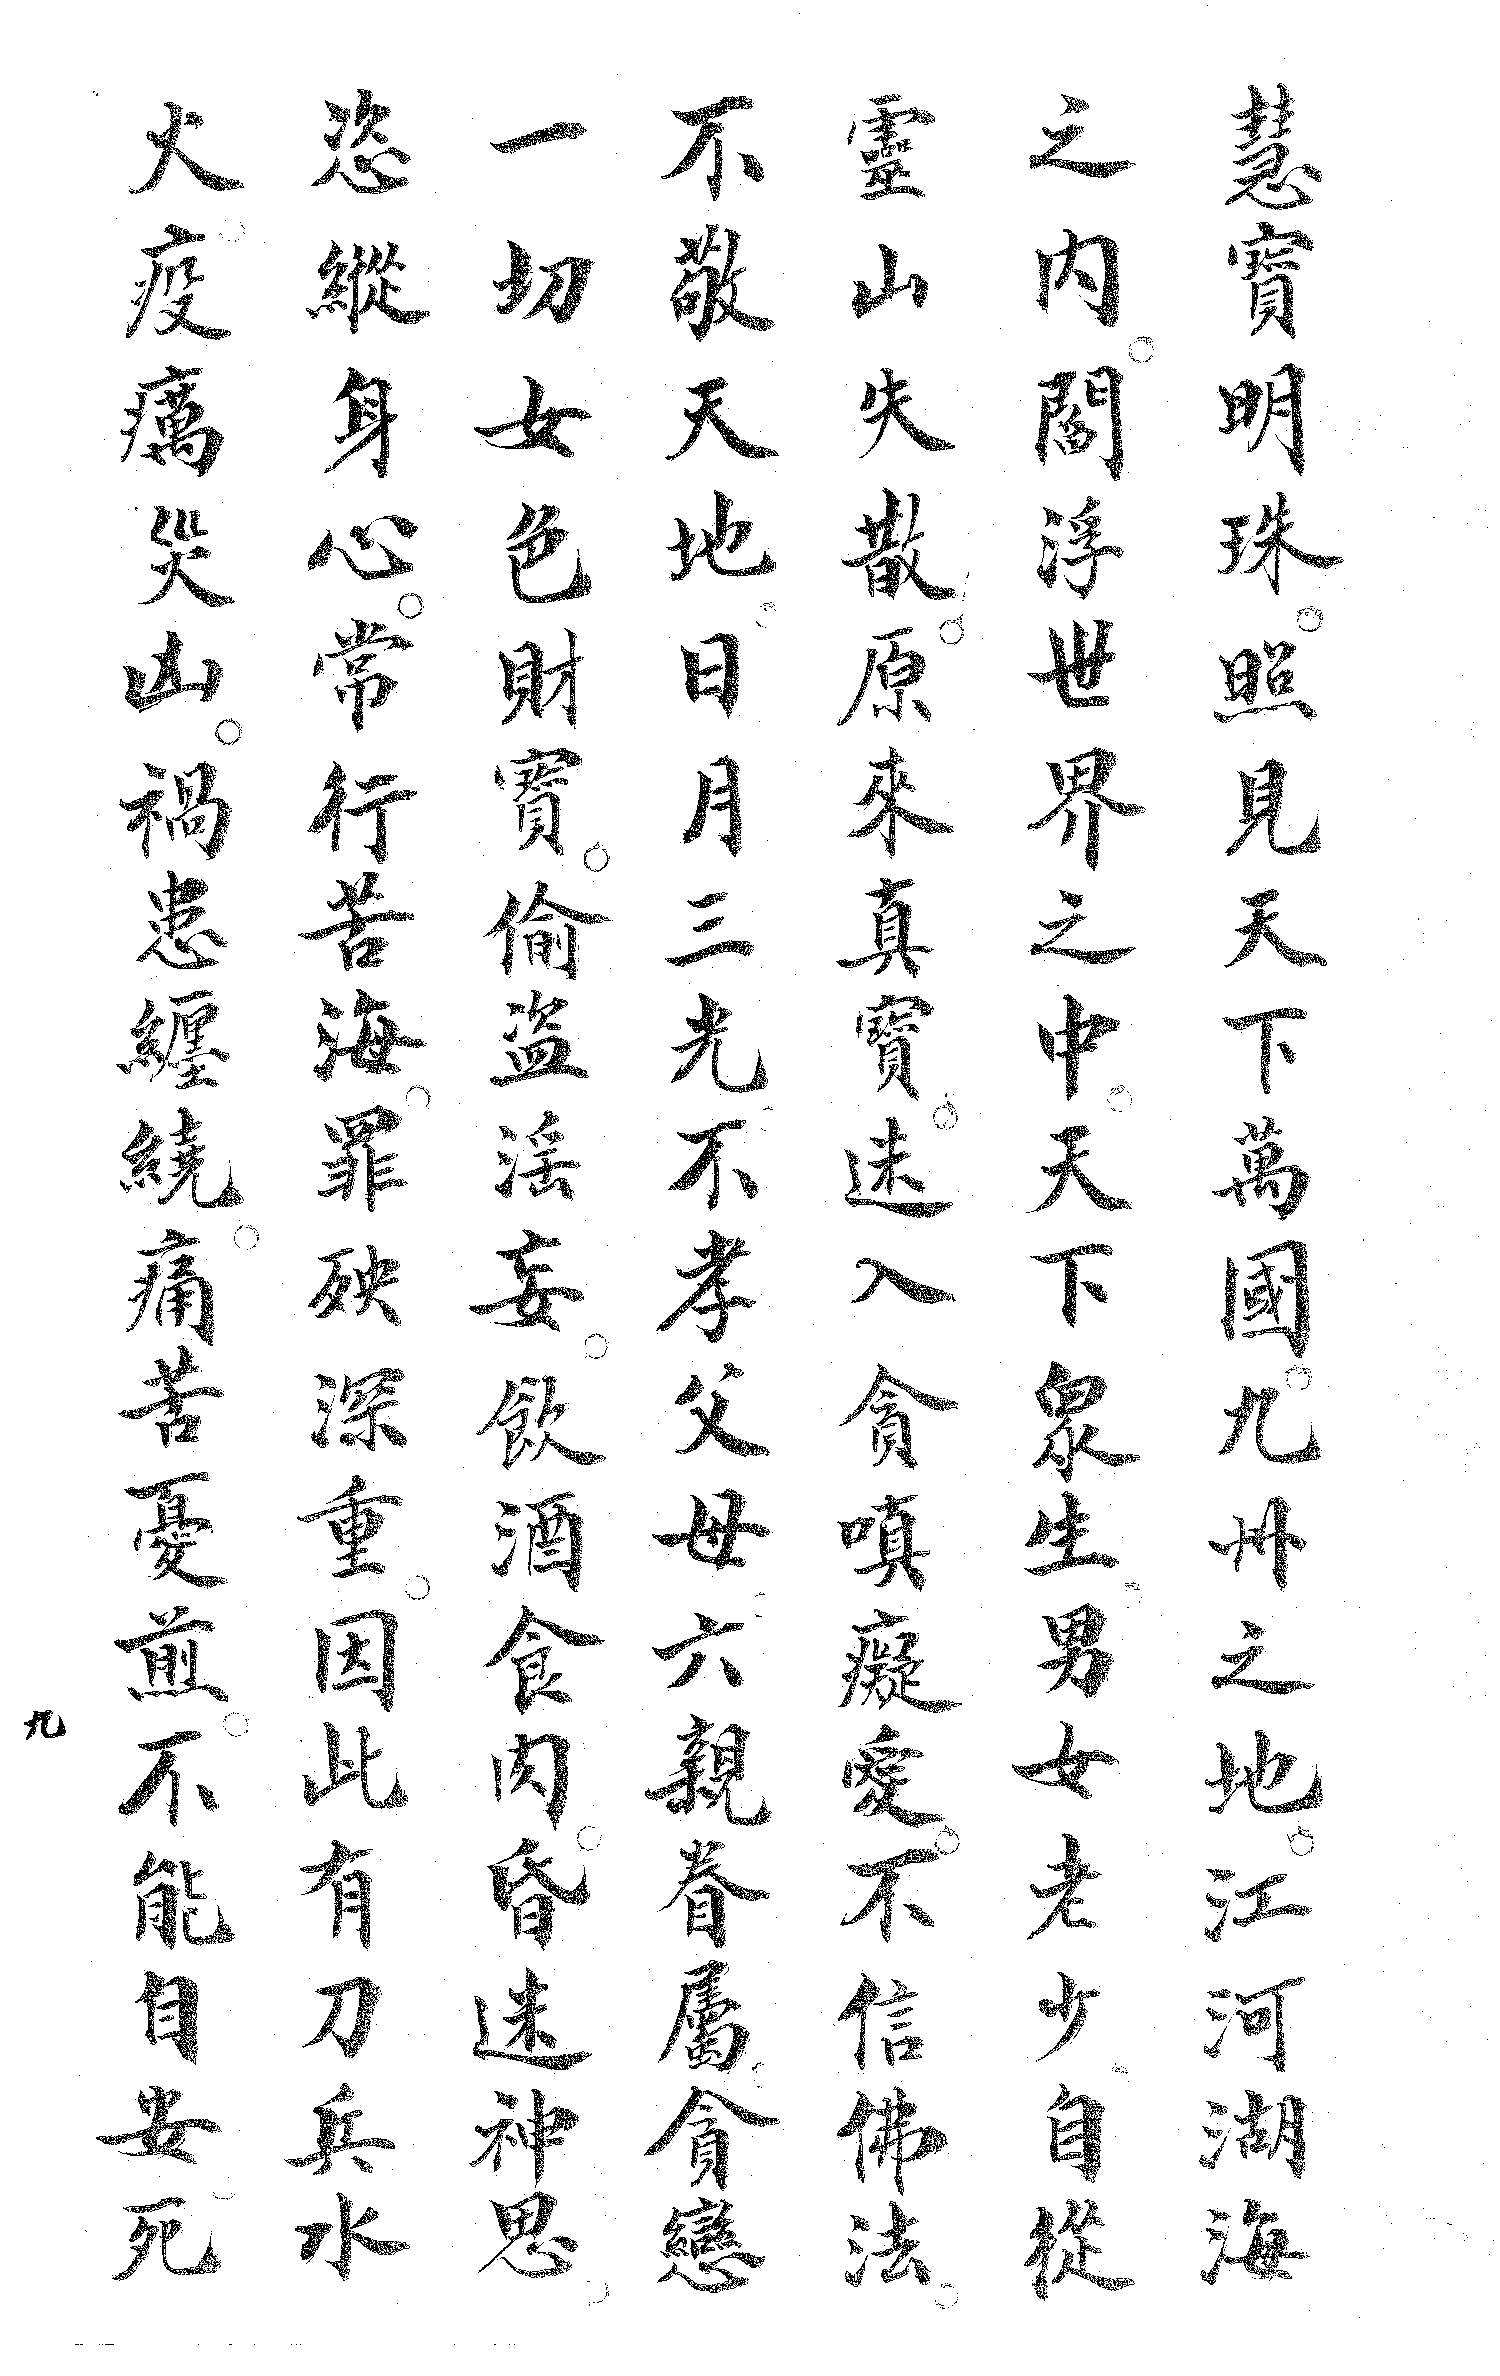 慧寶明珠。照見天下萬國。九州之地。江河湖海
之內。閻浮世界之中。天下眾生。男女老少。自從
靈山失散。原來真寶。迷入貪嗔癡愛。不信佛法。
不敬天地。日月三光。不孝父母。六親眷屬。貪戀
一切女色財寶。偷盜淫妄。飲酒食肉。昏迷神思。
恣縱身心。常行苦海。罪殃深重。因此有刀兵水
火。疫癘災凶。禍患纏繞。痛苦憂煎。不能自安。死
九